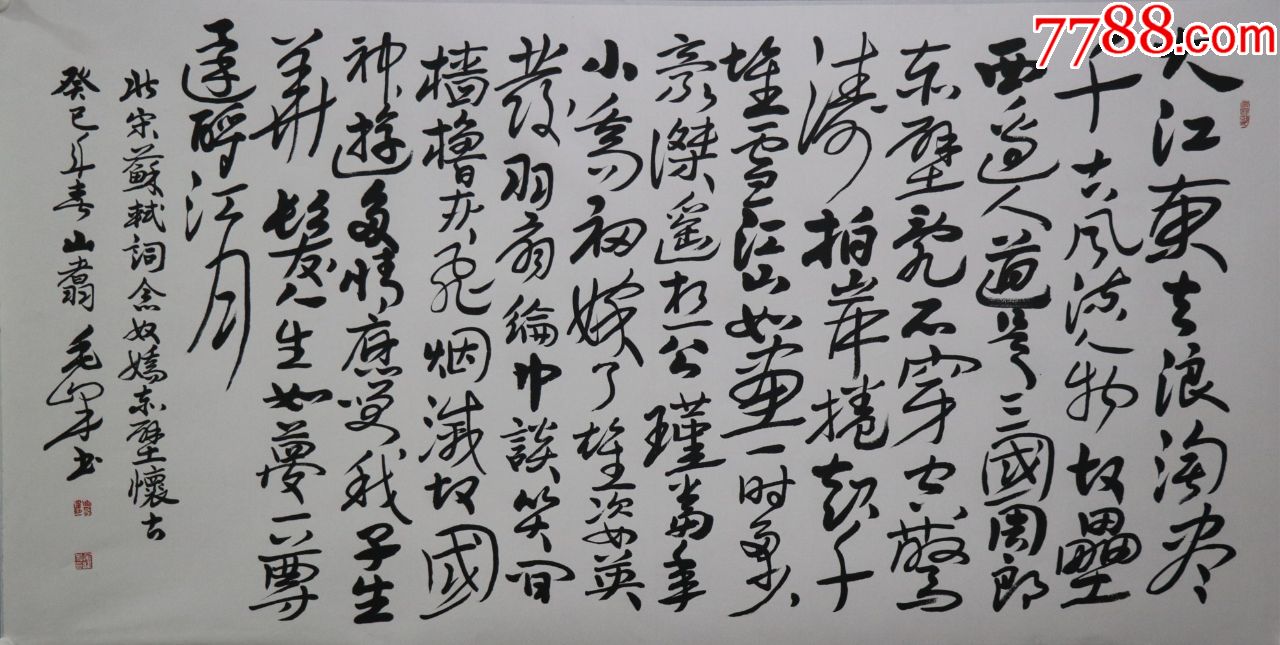 7788.com
大江東去浪淘尽
千古风流人物故壘
西邊人道是三國周郎
赤壁亂石穿空驚
濤拍岸捲起千
堆雪江山如畫一时多少
豪傑遥想公瑾當年
小喬初嫁了雄姿英
發羽扇綸巾談笑间
檣櫓灰飛烟滅故國
神遊多情應笑我早生
華髮人生如夢一尊
还酹江月
此宋蘇軾詞念奴嬌赤壁懷古
癸巳年春山翥毛书